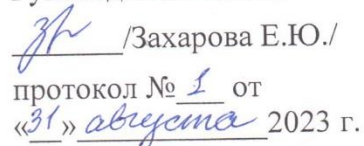 /Захарова Е.Ю./
протокол № 1 от
«31» августа 2023 г.